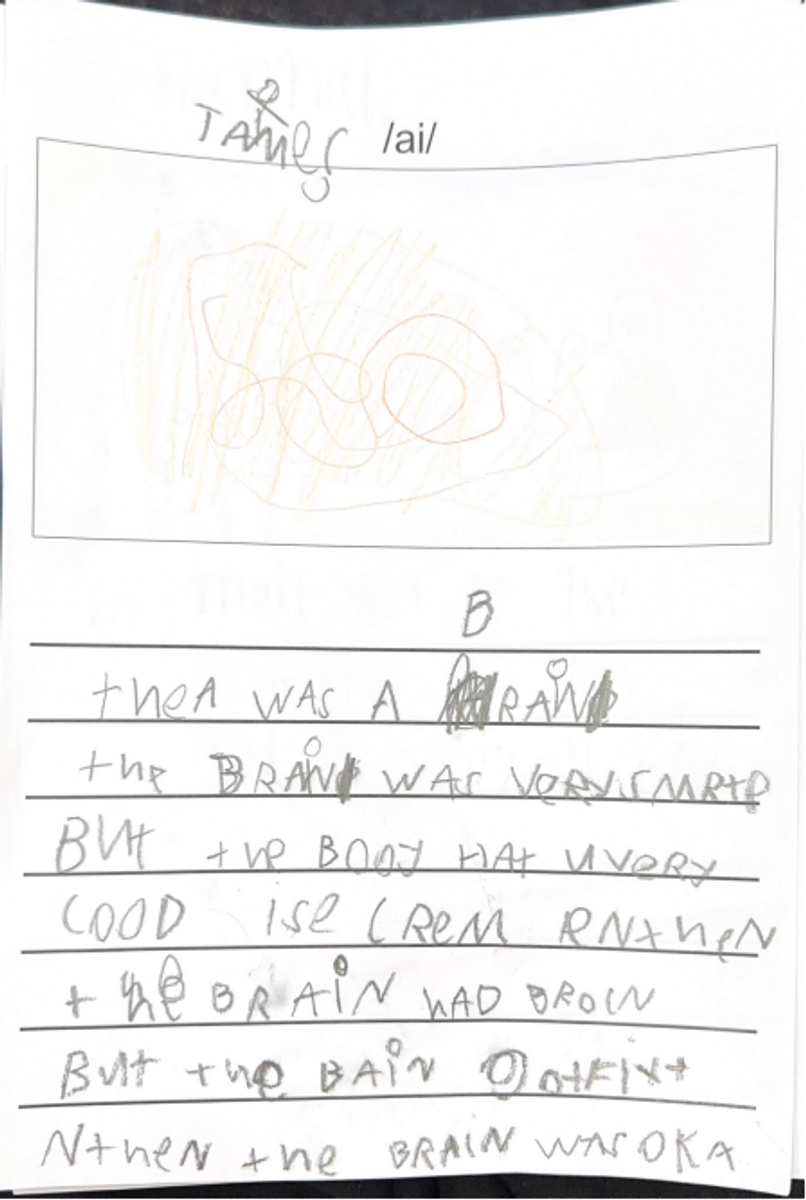 TAMER /ai/
B
theA WAS A RAiN
the BRAiN WAS VeRY SMARtP
BUt the BODY HAt UVeRY
COOD ISe CReM RNtheN
the BRAiN hAD BROCN
BUt the BAiN Got FiXt
NtheN the BRAIN WAS OKA